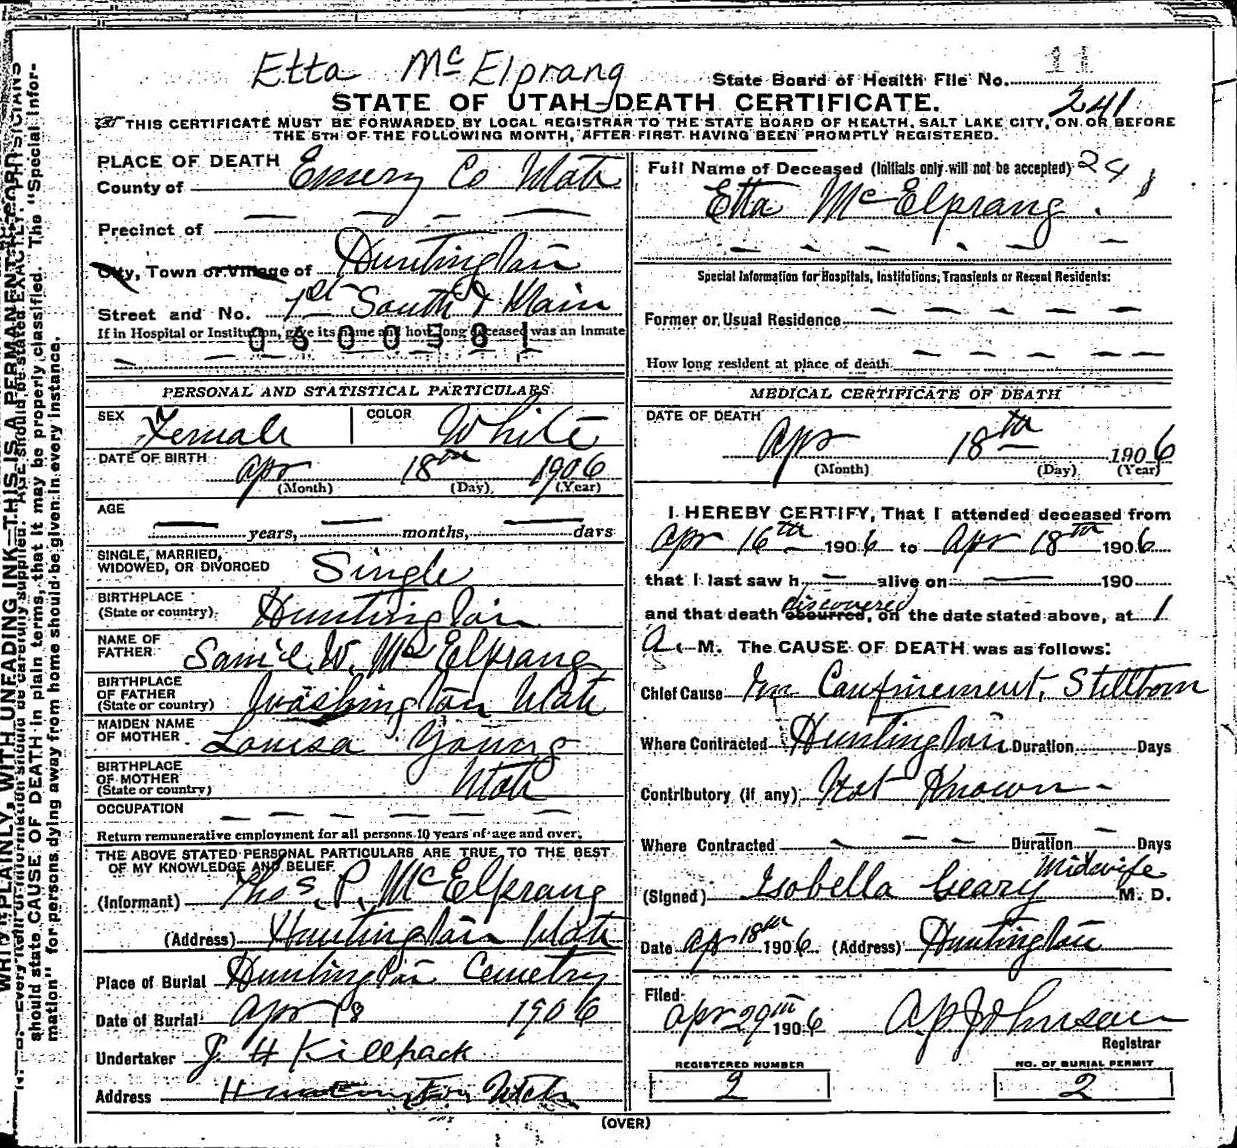 Etta McElprang
State Board of Health File No. 11
STATE OF UTAH—DEATH CERTIFICATE.
241
THIS CERTIFICATE MUST BE FORWARDED BY LOCAL REGISTRAR TO THE STATE BOARD OF HEALTH, SALT LAKE CITY, ON OR BEFORE
THE 5TH OF THE FOLLOWING MONTH, AFTER FIRST HAVING BEEN PROMPTLY REGISTERED.
PLACE OF DEATH
County of Emery Co Utah
Precinct of
City, Town or Village of Huntington
Street and No. 1st South & Main
If in Hospital or Institution, give its name and how long deceased was an inmate
0600581
PERSONAL AND STATISTICAL PARTICULARS
SEX Female COLOR White
DATE OF BIRTH Apr 18th 1906
(Month) (Day) (Year)
AGE
years, months, days
SINGLE, MARRIED,
WIDOWED, OR DIVORCED Single
BIRTHPLACE
(State or country) Huntington
NAME OF
FATHER W. McElprang
BIRTHPLACE
OF FATHER
(State or country) Washington Utah
MAIDEN NAME
OF MOTHER Louisa Young
BIRTHPLACE
OF MOTHER
(State or country) Utah
OCCUPATION
Return remunerative employment for all persons 10 years of age and over.
THE ABOVE STATED PERSONAL PARTICULARS ARE TRUE TO THE BEST
OF MY KNOWLEDGE AND BELIEF
(Informant) Thos. P. McElprang
(Address) Huntington Utah
Place of Burial Huntington Cemetry
Date of Burial Apr 18 1906
Undertaker J H Killpack
Address Huntington Utah
Full Name of Deceased (Initials only will not be accepted) 24
Etta McElprang.
Special Information for Hospitals, Institutions, Transients or Recent Residents:
Former or Usual Residence
How long resident at place of death
MEDICAL CERTIFICATE OF DEATH
DATE OF DEATH
Apr 18th 1906
(Month) (Day) (Year)
I HEREBY CERTIFY, That I attended deceased from
Apr 16th 1906 to Apr 18th 1906
that I last saw h alive on 190
discovered
and that death occurred, on the date stated above, at 1
A. M. The CAUSE OF DEATH was as follows:
Chief Cause In Confinement. Stillborn
Where Contracted Huntington Duration Days
Contributory (if any) Not Known
Where Contracted Duration Days
Midwife
(Signed) Isobella Geary M. D.
Date Apr 18th 1906 (Address) Huntington
Filed
Apr 29th 1906 A P Johnson
Registrar
REGISTERED NUMBER NO. OF BURIAL PERMIT
2 2
(OVER)
WRITE PLAINLY, WITH UNFADING INK—THIS IS A PERMANENT RECORD
N. B.—Every item of information should be carefully supplied. AGE should be stated EXACTLY. PHYSICIANS
should state CAUSE OF DEATH in plain terms, that it may be properly classified. The "Special Infor-
mation" for persons dying away from home should be given in every instance.